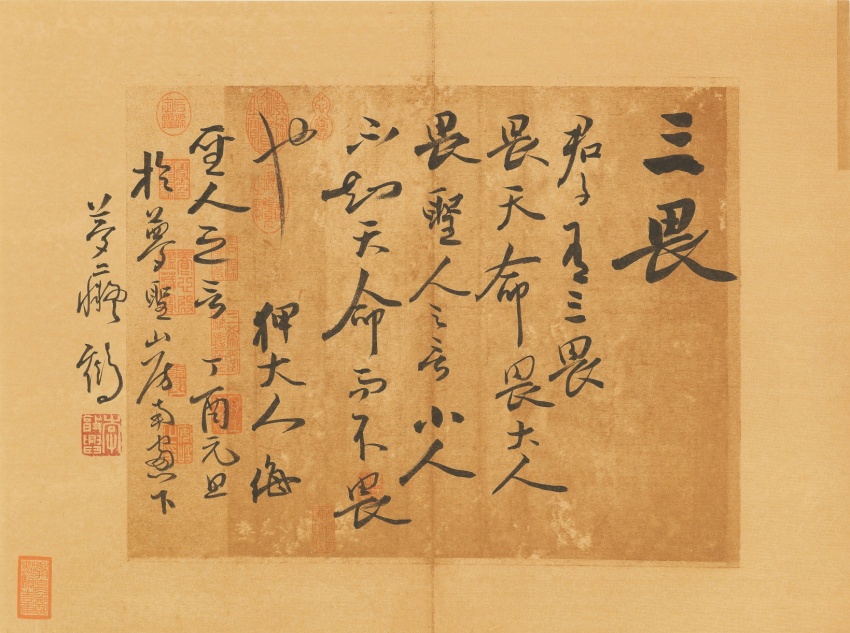 三畏
君子有三畏
畏天命畏大人
畏聖人之言小人
不知天命而不畏
也 狎大人侮
聖人之言 丁酉元旦
於夢聖山房南窗下
夢癡鶴